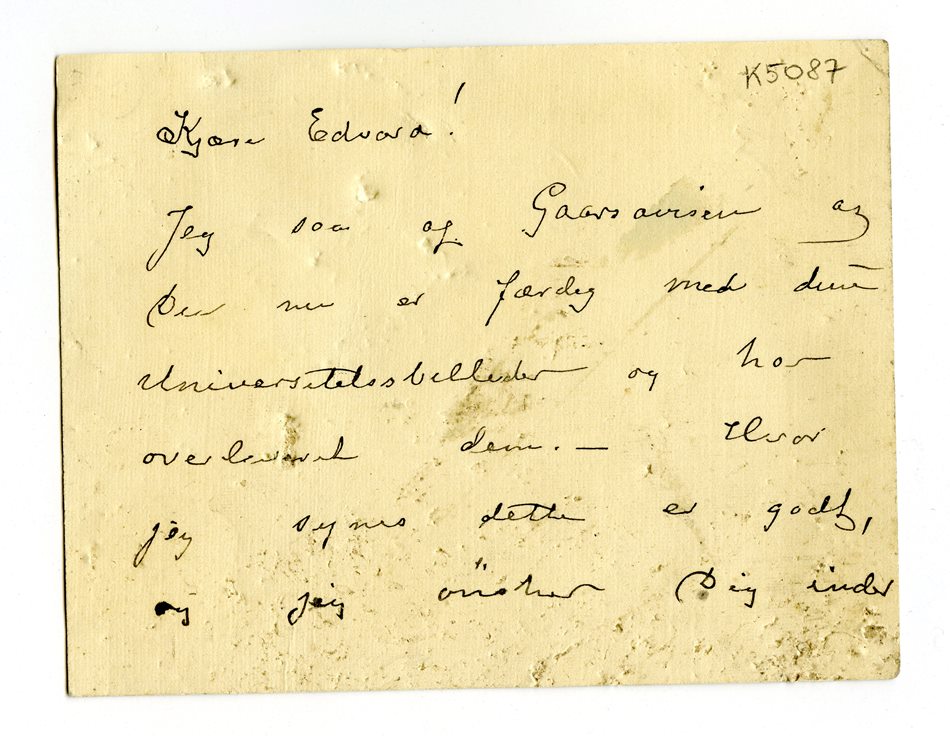 K5087
Kjære Edvard!
Jeg saa af Gaarsavisen at
Du nu er færdig med dine
Universitetsbilleder og har
overleveret dem. — Hvor
jeg synes dette er godt,
og jeg önsker Dig inder